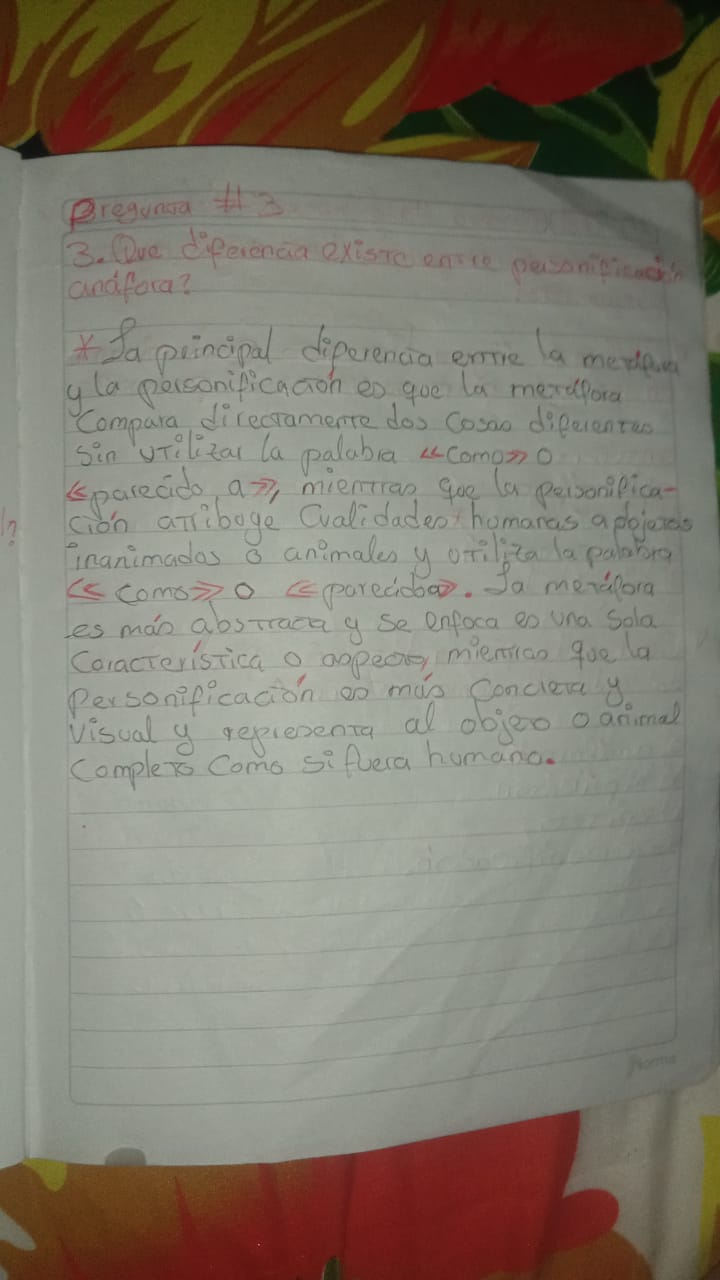 Pregunta # 3
3. Que diferencia existe entre personificación
anáfora?
* La principal diferencia entre la metáfora
y la personificación es que la metáfora
Compara directamente dos cosas diferentes
sin utilizar la palabra «como» o
«parecido a», mientras que la personifica-
ción atriboye cualidades humanas a objetos
inanimados o animales y utiliza la palabra
«como» o «parecido a». La metáfora
es más abstracta y se enfoca en una sola
característica o aspecto, mientras que la
Personificación es más concreta y
visual y representa al objeto o animal
completo como si fuera humano.
Norma